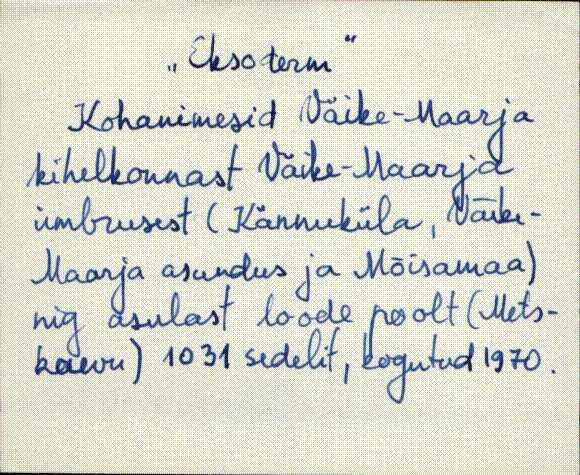 „Eksoterm"
Kohanimesid Väike-Maarja
kihelkonnast Väike-Maarja
ümbrusest (Kännuküla, Väike-
Maarja asundus ja Mõisamaa)
nig asulast loode poolt (Mets-
kaevu) 1031 sedelit, kogutud 1970.